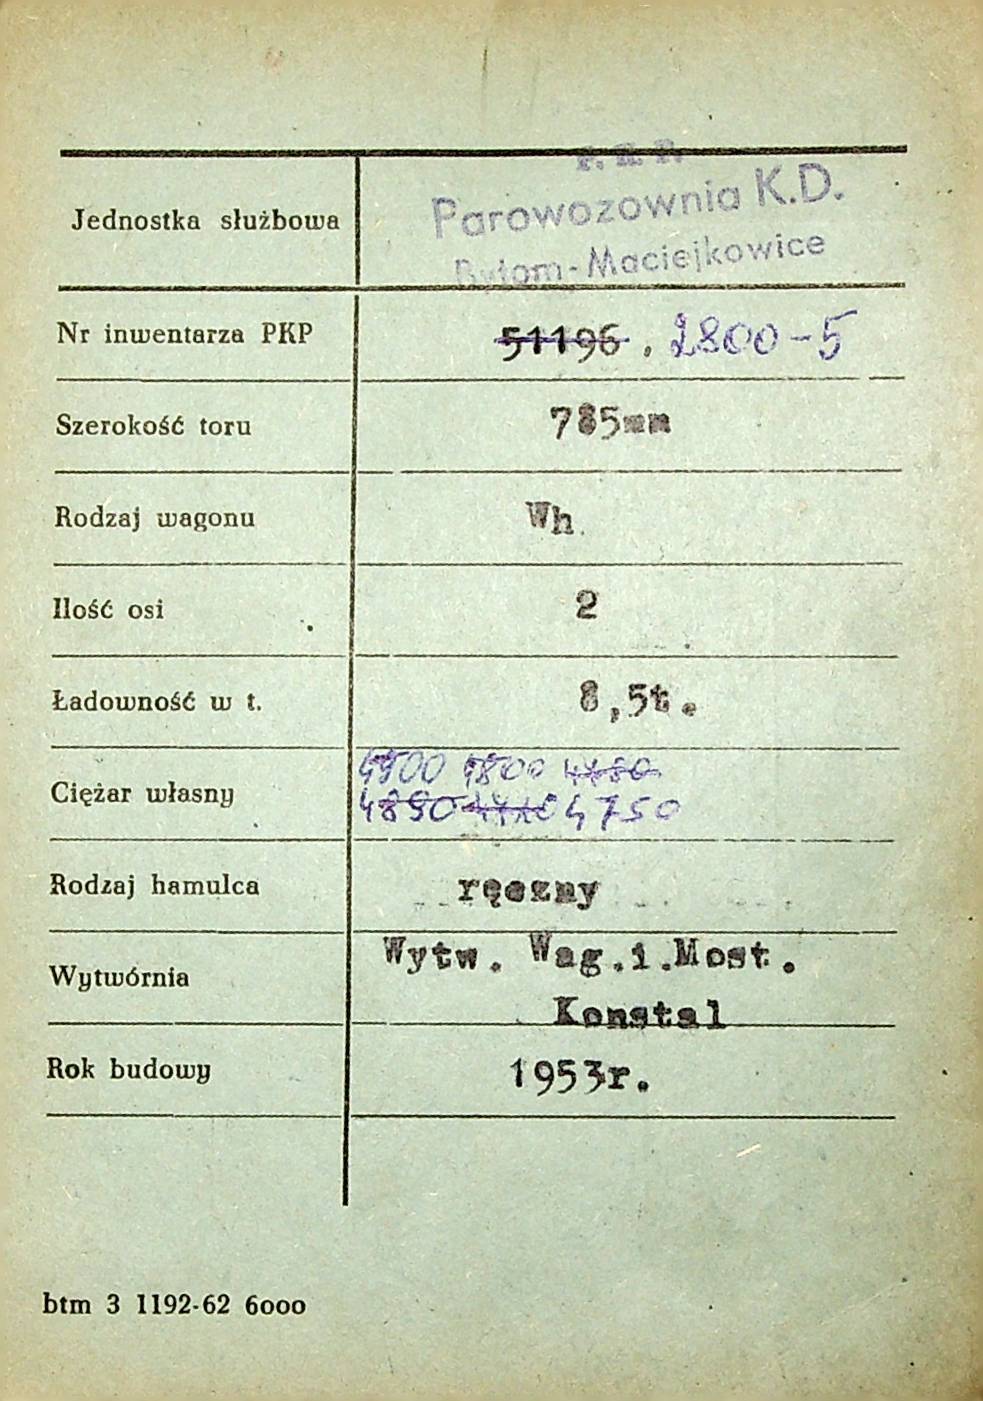 P. K. P.
Jednostka służbowa Parowozownia K.D.
Bytom-Maciejkowice
Nr inwentarza PKP 51196 . 2800-5
Szerokość toru 785mm
Rodzaj wagonu Wh
Ilość osi 2
Ładowność w t. 8,5t.
4900 4800
Ciężar własny 4890 4750
Rodzaj hamulca ręczny
Wytwórnia Wytw. Wag.i.Most.
Konstal
Rok budowy 1953r.
btm 3 1192-62 6000